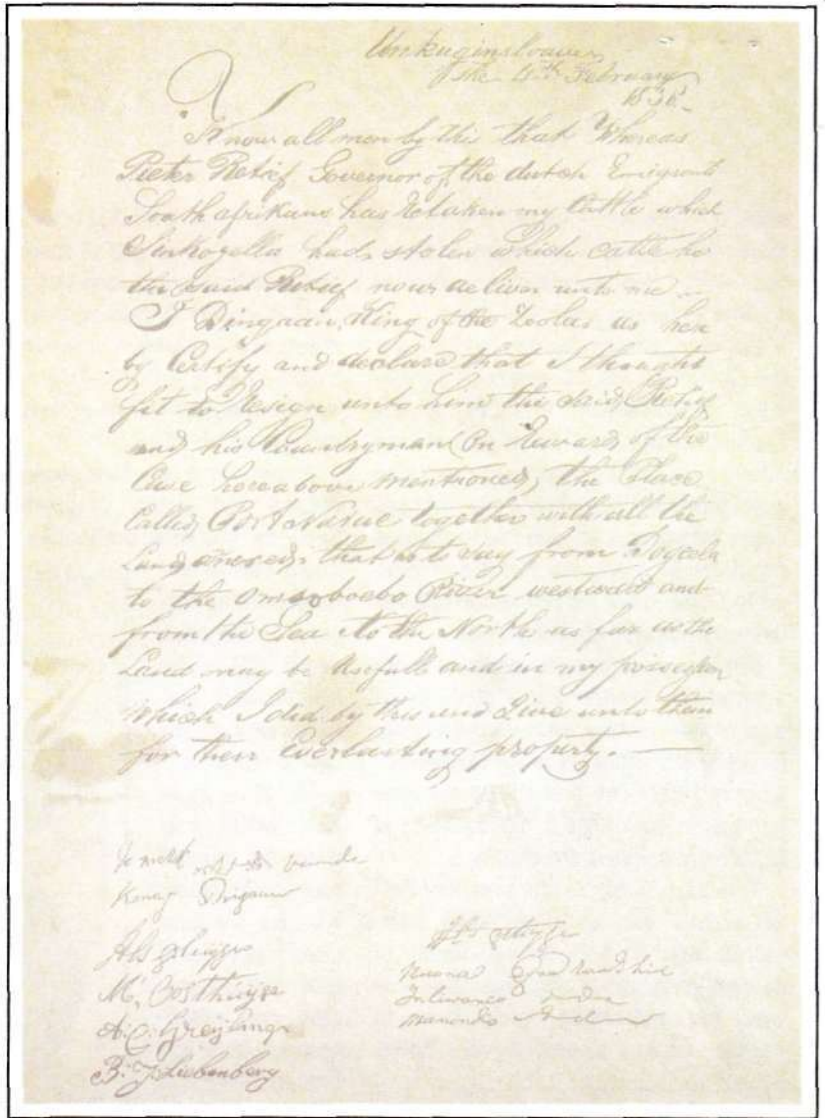 Unkuginsloave
the 4th February
1838-
Know all men by this that Whereas
Pieter Retief Governor of the dutch Emigrants
South afrikans has Retaken my Cattle which
Sinkogella had stolen which cattle he
the said Retief now deliver unto me
I Dingaan, King of the Zoolas as here
by Certify and declare that I thought
fit to Resign unto him the said Retief
and his Countryman (on Reward of the
Case hereabove mentioned) the Place
Called Port Natal together with all the
Land annexed, that is to say from Dogeela
to the Omsoboebo River westward and
from the Sea to the North as far as the
Land may be Usefull and in my possession
which I did by this and Give unto them
for their Everlasting property.
Konag
M. Oosthuyse
A. C. Greyling
B. J. Liebenberg